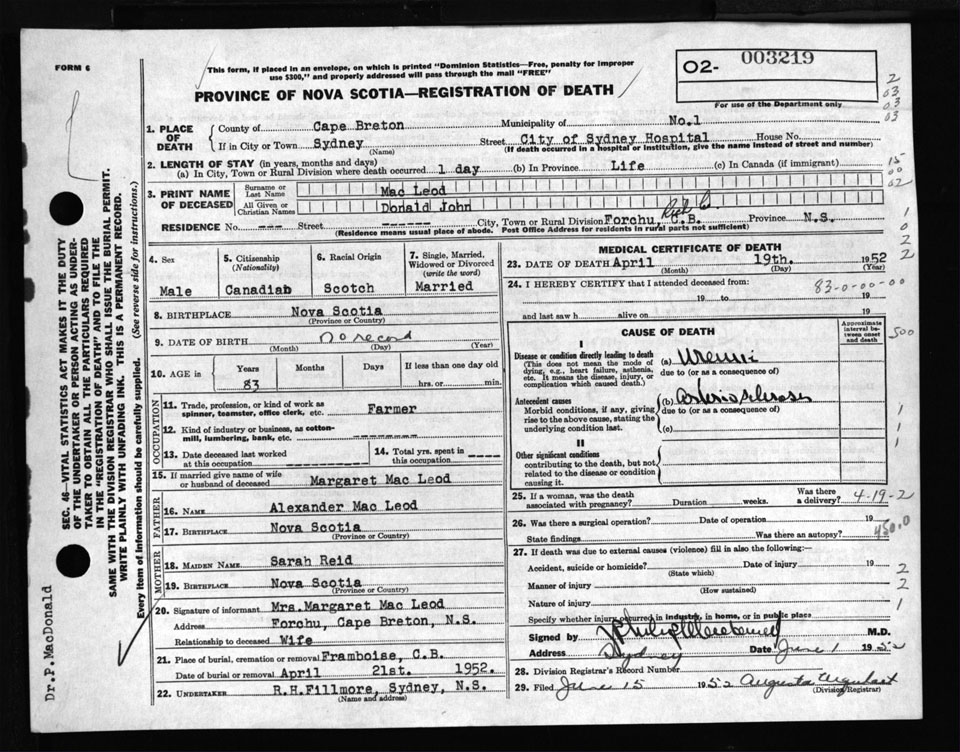 FORM 6
This form, if placed in an envelope, on which is printed "Dominion Statistics—Free, penalty for improper
use $300," and properly addressed will pass through the mail "FREE"
PROVINCE OF NOVA SCOTIA—REGISTRATION OF DEATH
O2- 003219
For use of the Department only
1. PLACE OF DEATH
County of Cape Breton Municipality of No.1
If in City or Town Sydney (Name) Street City of Sydney Hospital House No.
(If death occurred in a hospital or institution, give the name instead of street and number)
2. LENGTH OF STAY (in years, months and days)
(a) In City, Town or Rural Division where death occurred 1 day (b) In Province Life (c) In Canada (if immigrant)
3. PRINT NAME OF DECEASED
Surname or Last Name Mac Leod
All Given or Christian Names Donald John
RESIDENCE No. --- Street ---- City, Town or Rural Division Forchu, C.B. Province N.S.
(Residence means usual place of abode. Post Office Address for residents in rural parts not sufficient)
4. Sex
Male
5. Citizenship (Nationality)
Canadiab
6. Racial Origin
Scotch
7. Single, Married, Widowed or Divorced (write the word)
Married
8. BIRTHPLACE Nova Scotia
(Province or Country)
9. DATE OF BIRTH no record
(Month) (Day) (Year)
10. AGE in Years Months Days If less than one day old
83 hrs. or min.
OCCUPATION
11. Trade, profession, or kind of work as
spinner, teamster, office clerk, etc. Farmer
12. Kind of industry or business, as cotton-
mill, lumbering, bank, etc. -------
13. Date deceased last worked
at this occupation
14. Total yrs. spent in
this occupation
15. If married give name of wife
or husband of deceased Margaret Mac Leod
FATHER
16. NAME Alexander Mac Leod
17. BIRTHPLACE Nova Scotia
(Province or Country)
MOTHER
18. MAIDEN NAME Sarah Reid
19. BIRTHPLACE Nova Scotia
(Province or Country)
20. Signature of informant Mrs.Margaret Mac Leod
Address Forchu, Cape Breton, N.S.
Relationship to deceased Wife
21. Place of burial, cremation or removal Framboise, C.B.
Date of burial or removal April 21st. 1952.
22. UNDERTAKER R.H.Fillmore, Sydney, N.S.
(Name and address)
MEDICAL CERTIFICATE OF DEATH
23. DATE OF DEATH April 19th. 1952
(Month) (Day) (Year)
24. I HEREBY CERTIFY that I attended deceased from:
19 to 19
and last saw h alive on 19
CAUSE OF DEATH
Approximate interval between onset and death
I
Disease or condition directly leading to death
(This does not mean the mode of
dying, e.g., heart failure, asthenia,
etc. It means the disease, injury, or
complication which caused death.)
(a)
due to (or as a consequence of)
Antecedent causes
Morbid conditions, if any, giving
rise to the above cause, stating the
underlying condition last.
(b) Arteriosclerosis
due to (or as a consequence of)
(c)
II
Other significant conditions
contributing to the death, but not
related to the disease or condition
causing it.
25. If a woman, was the death
associated with pregnancy? Duration weeks. Was there
a delivery?
26. Was there a surgical operation? Date of operation 19
State findings Was there an autopsy?
27. If death was due to external causes (violence) fill in also the following:—
Accident, suicide or homicide? Date of injury 19
(State which)
Manner of injury
(How sustained)
Nature of injury
Specify whether injury occurred in industry, in home, or in public place
Signed by M.D.
Address Sydney Date June 1 1952
28. Division Registrar's Record Number
29. Filed June 15 1952 Augusta Urquhart
(Division Registrar)
2
03
03
03
15
00
02
1
0
2
2
83-0-00-00
500
1
1
1
4-19-2
450.0
2
2
1
SEC. 46—VITAL STATISTICS ACT MAKES IT THE DUTY
OF THE UNDERTAKER OR PERSON ACTING AS UNDER-
TAKER TO OBTAIN ALL THE PARTICULARS REQUIRED
IN THE "REGISTRATION OF DEATH" AND TO FILE THE
SAME WITH THE DIVISION REGISTRAR WHO SHALL ISSUE THE BURIAL PERMIT.
WRITE PLAINLY WITH UNFADING INK. THIS IS A PERMANENT RECORD.
Every item of information should be carefully supplied. (See reverse side for instructions.)
Dr.P.MacDonald